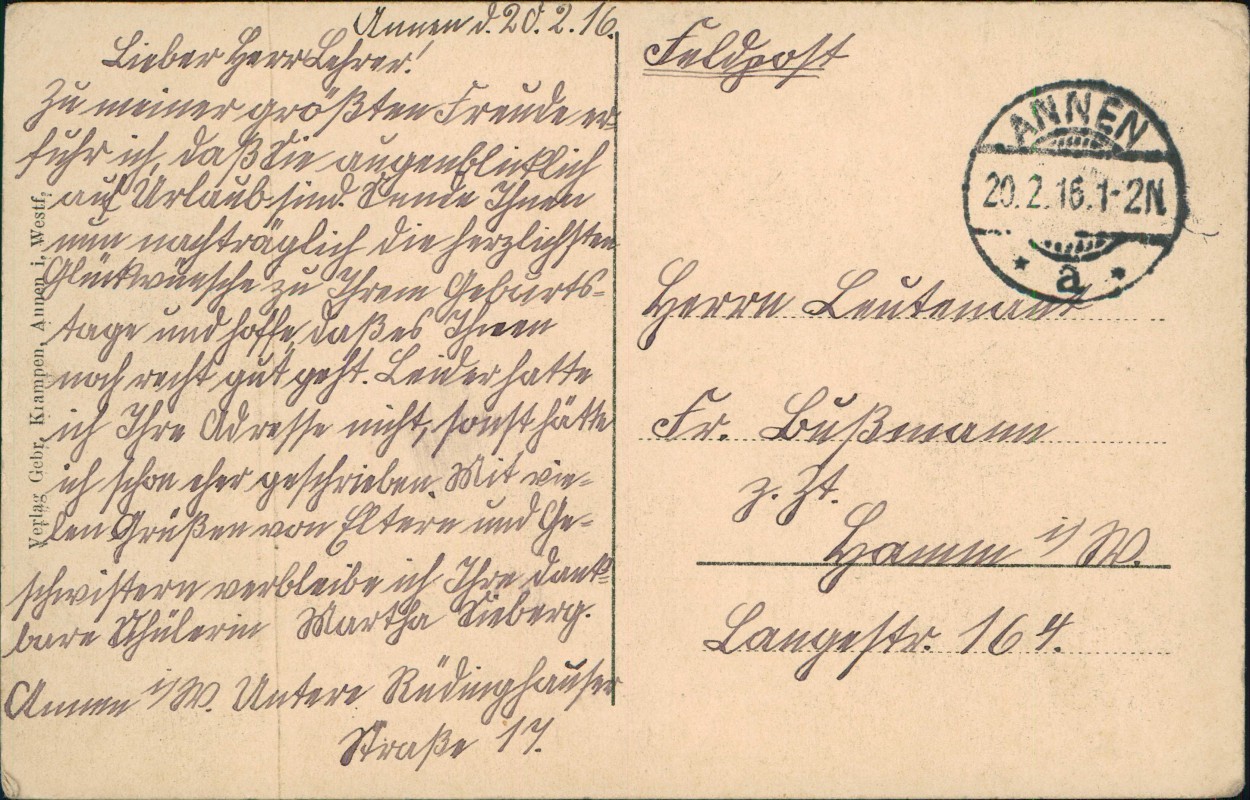 Annen d. 20. 2. 16.
Lieber Herr Lehrer!
Zu meiner größten Freude er-
fuhr ich, daß Sie augenblicklich
auf Urlaub sind. Sende Ihnen
nun nachträglich die herzlichsten
Glückwünsche zu Ihrem Geburts-
tage und hoffe, daß es Ihnen
noch recht gut geht. Leider hatte
ich Ihre Adresse nicht, sonst hätte
ich schon eher geschrieben. Mit vie-
len Grüßen von Eltern und Ge-
schwistern verbleibe ich Ihre dank-
bare Schülerin Martha Sieberg.
Annen i/W. Untere Rüdinghauser
Straße 17.
Verlag Gebr. Krampen, Annen i. Westf.
Feldpost
ANNEN
20.2.16.1-2N
* a *
Herrn Leutenant
Fr. Bußmann
z. Zt.
Hamm i/W.
Langestr. 164.